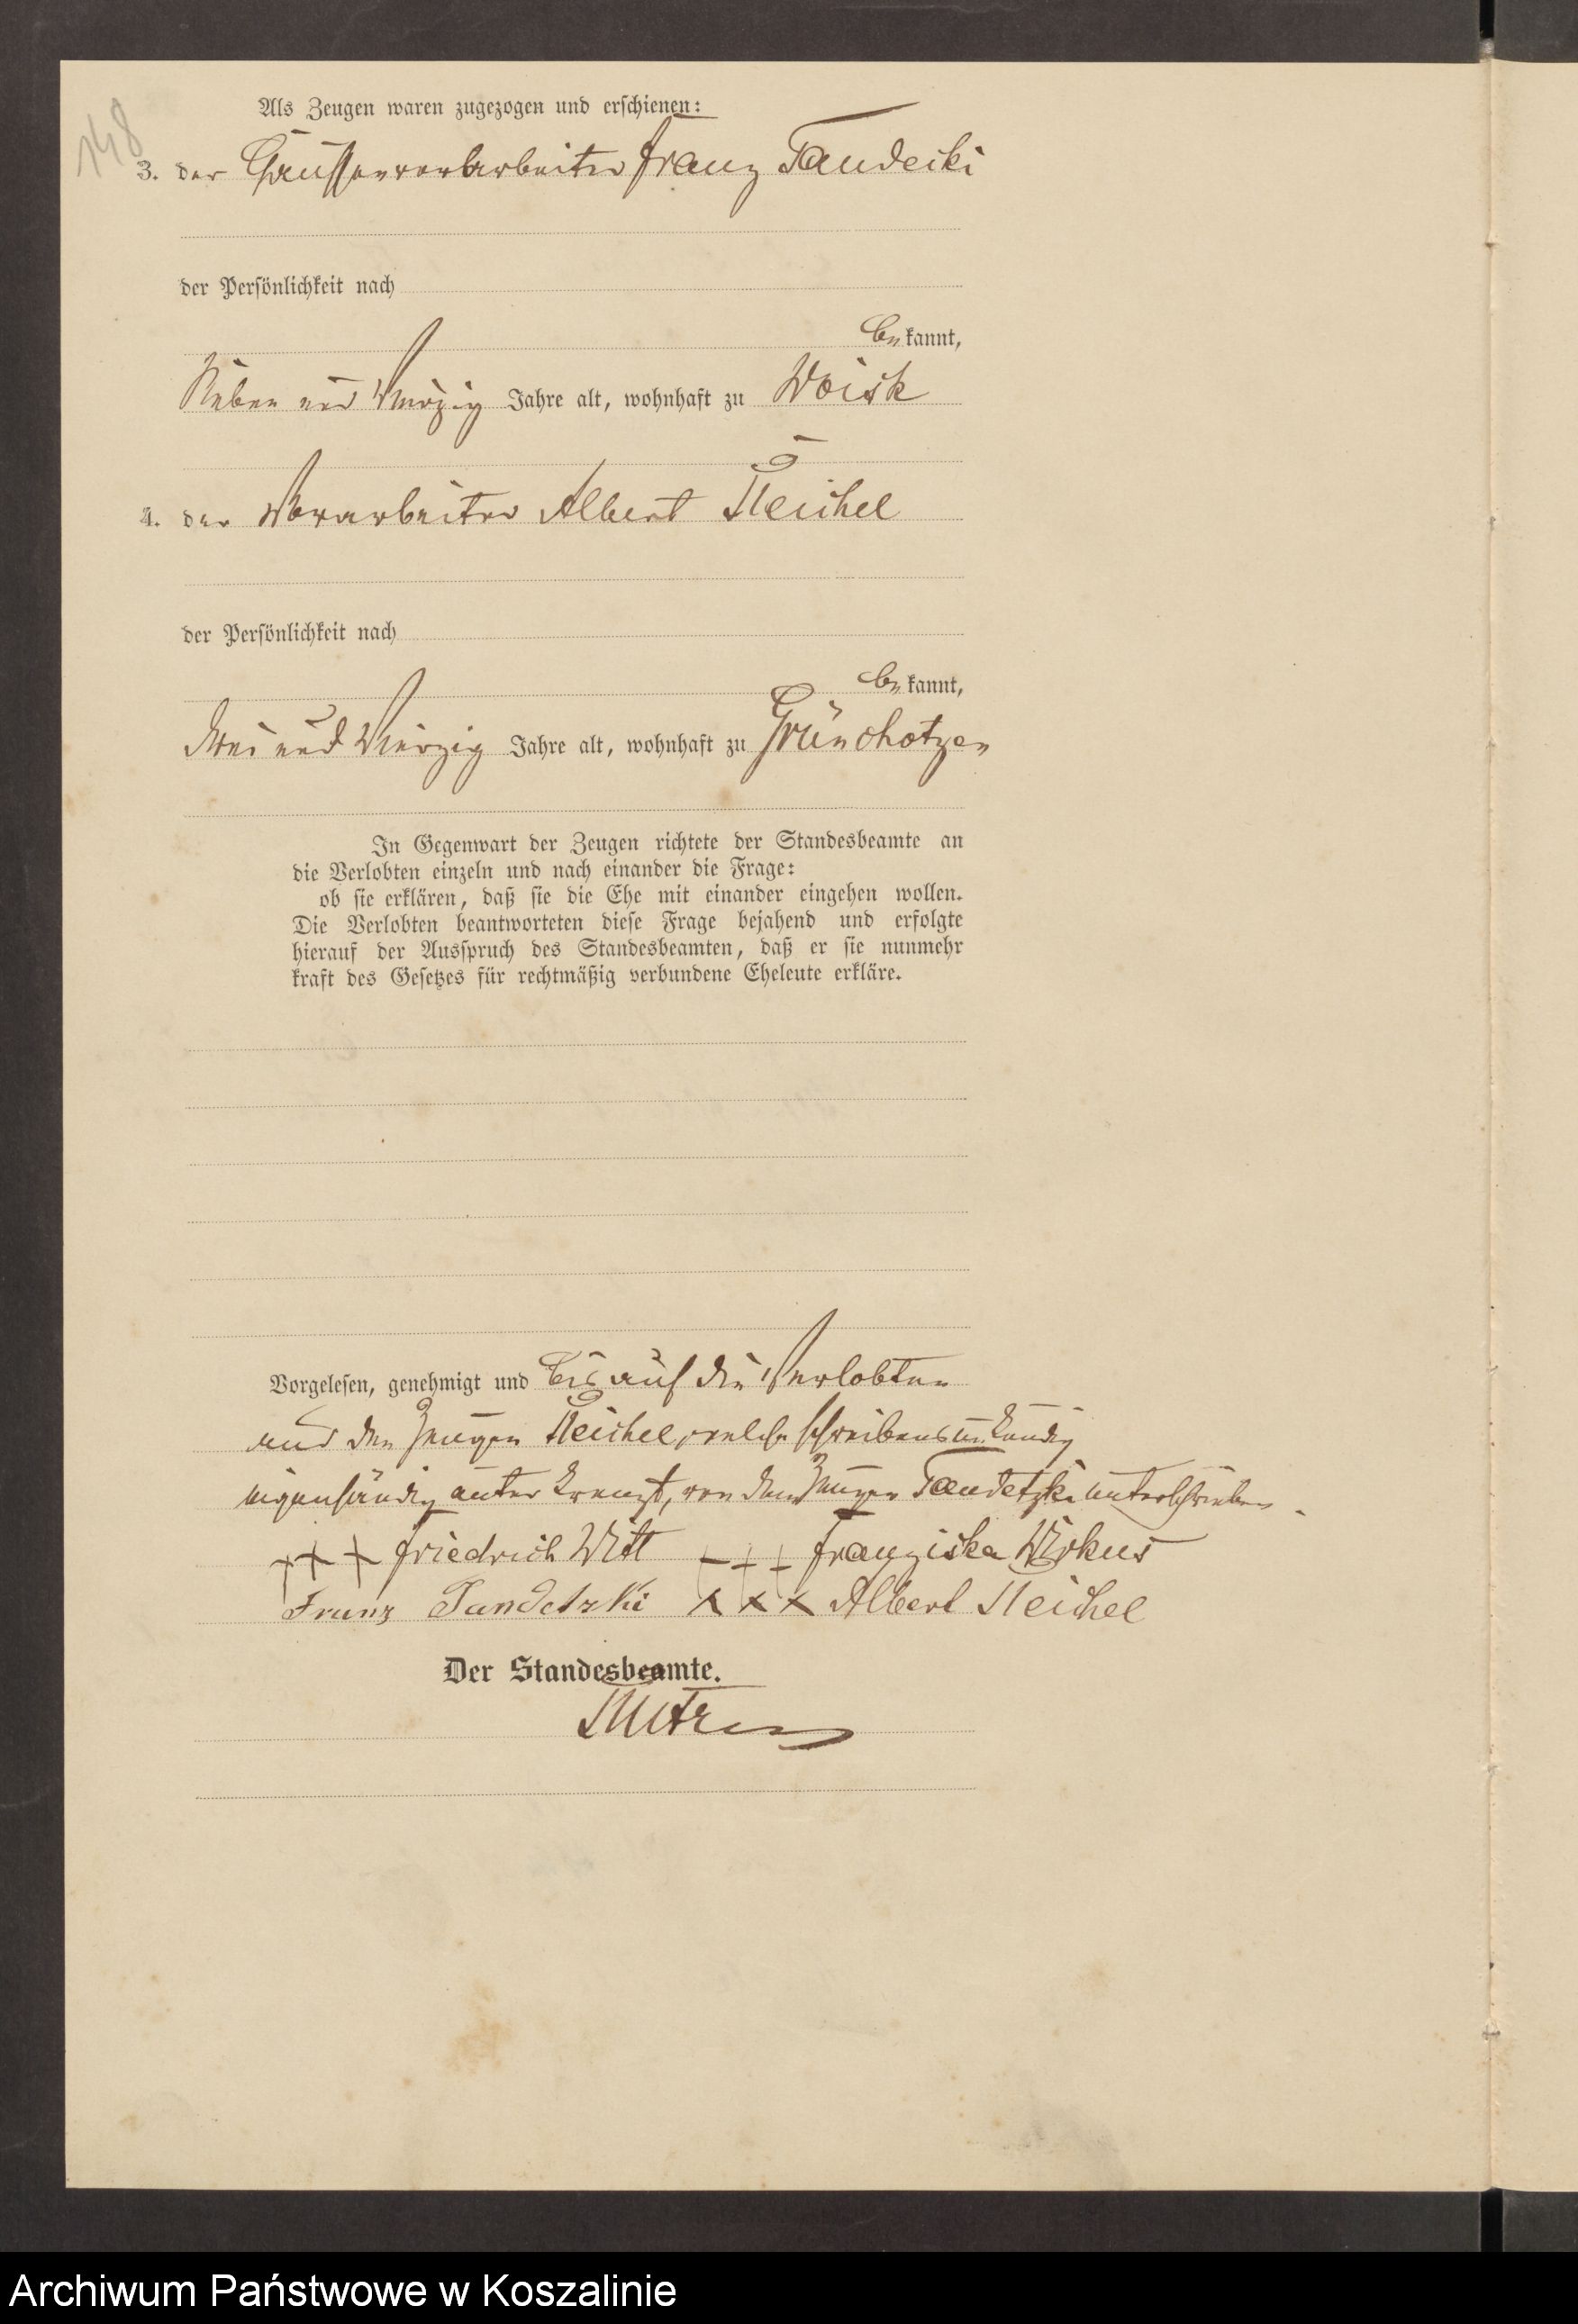 148
Als Zeugen waren zugezogen und erschienen:
3. der Chausseevorarbeiter Franz Tandecki
der Persönlichkeit nach
bekannt,
Sieben und Vierzig Jahre alt, wohnhaft zu Woisk
4. der Vorarbeiter Albert Reichel
der Persönlichkeit nach
bekannt,
Drei und Vierzig Jahre alt, wohnhaft zu Grünchotzen
In Gegenwart der Zeugen richtete der Standesbeamte an
die Verlobten einzeln und nach einander die Frage:
ob sie erklären, daß sie die Ehe mit einander eingehen wollen.
Die Verlobten beantworteten diese Frage bejahend und erfolgte
hierauf der Ausspruch des Standesbeamten, daß er sie nunmehr
kraft des Gesetzes für rechtmäßig verbundene Eheleute erkläre.
Vorgelesen, genehmigt und bis auf die Verlobten
und den Zeugen Reichel, welche schreibensunkundig
eigenhändig unterkreuzt, von dem Zeugen Tandetzki unterschrieben.
+++ Friedrich Witt +++ Franziska Wirkus
Franz Tandetzki XXX Albert Reichel
Der Standesbeamte.
Archiwum Państwowe w Koszalinie